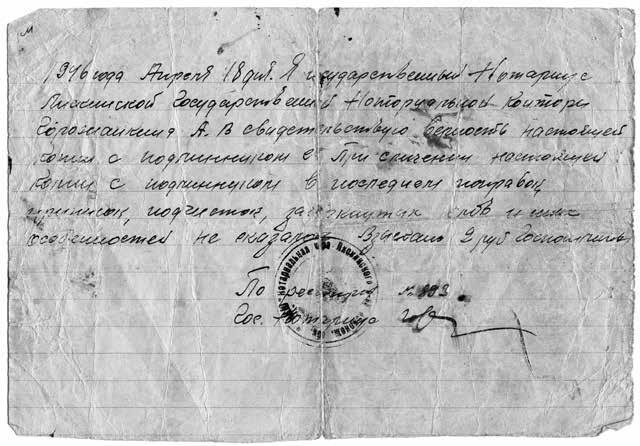 м
1946 года Апреля 18 дня. Я государственный Нотариус
Государственной Нотариальной Конторы
А. В свидетельствую верность настоящей
копии с подлинником её При сличении настоящей
копии с подлинником в последнем поправок
приписок, подчисток, зачеркнутых слов и иных
особенностей не оказалось Взыскано 2 руб Госпошлины
По реестру №
Гос. Нотариус